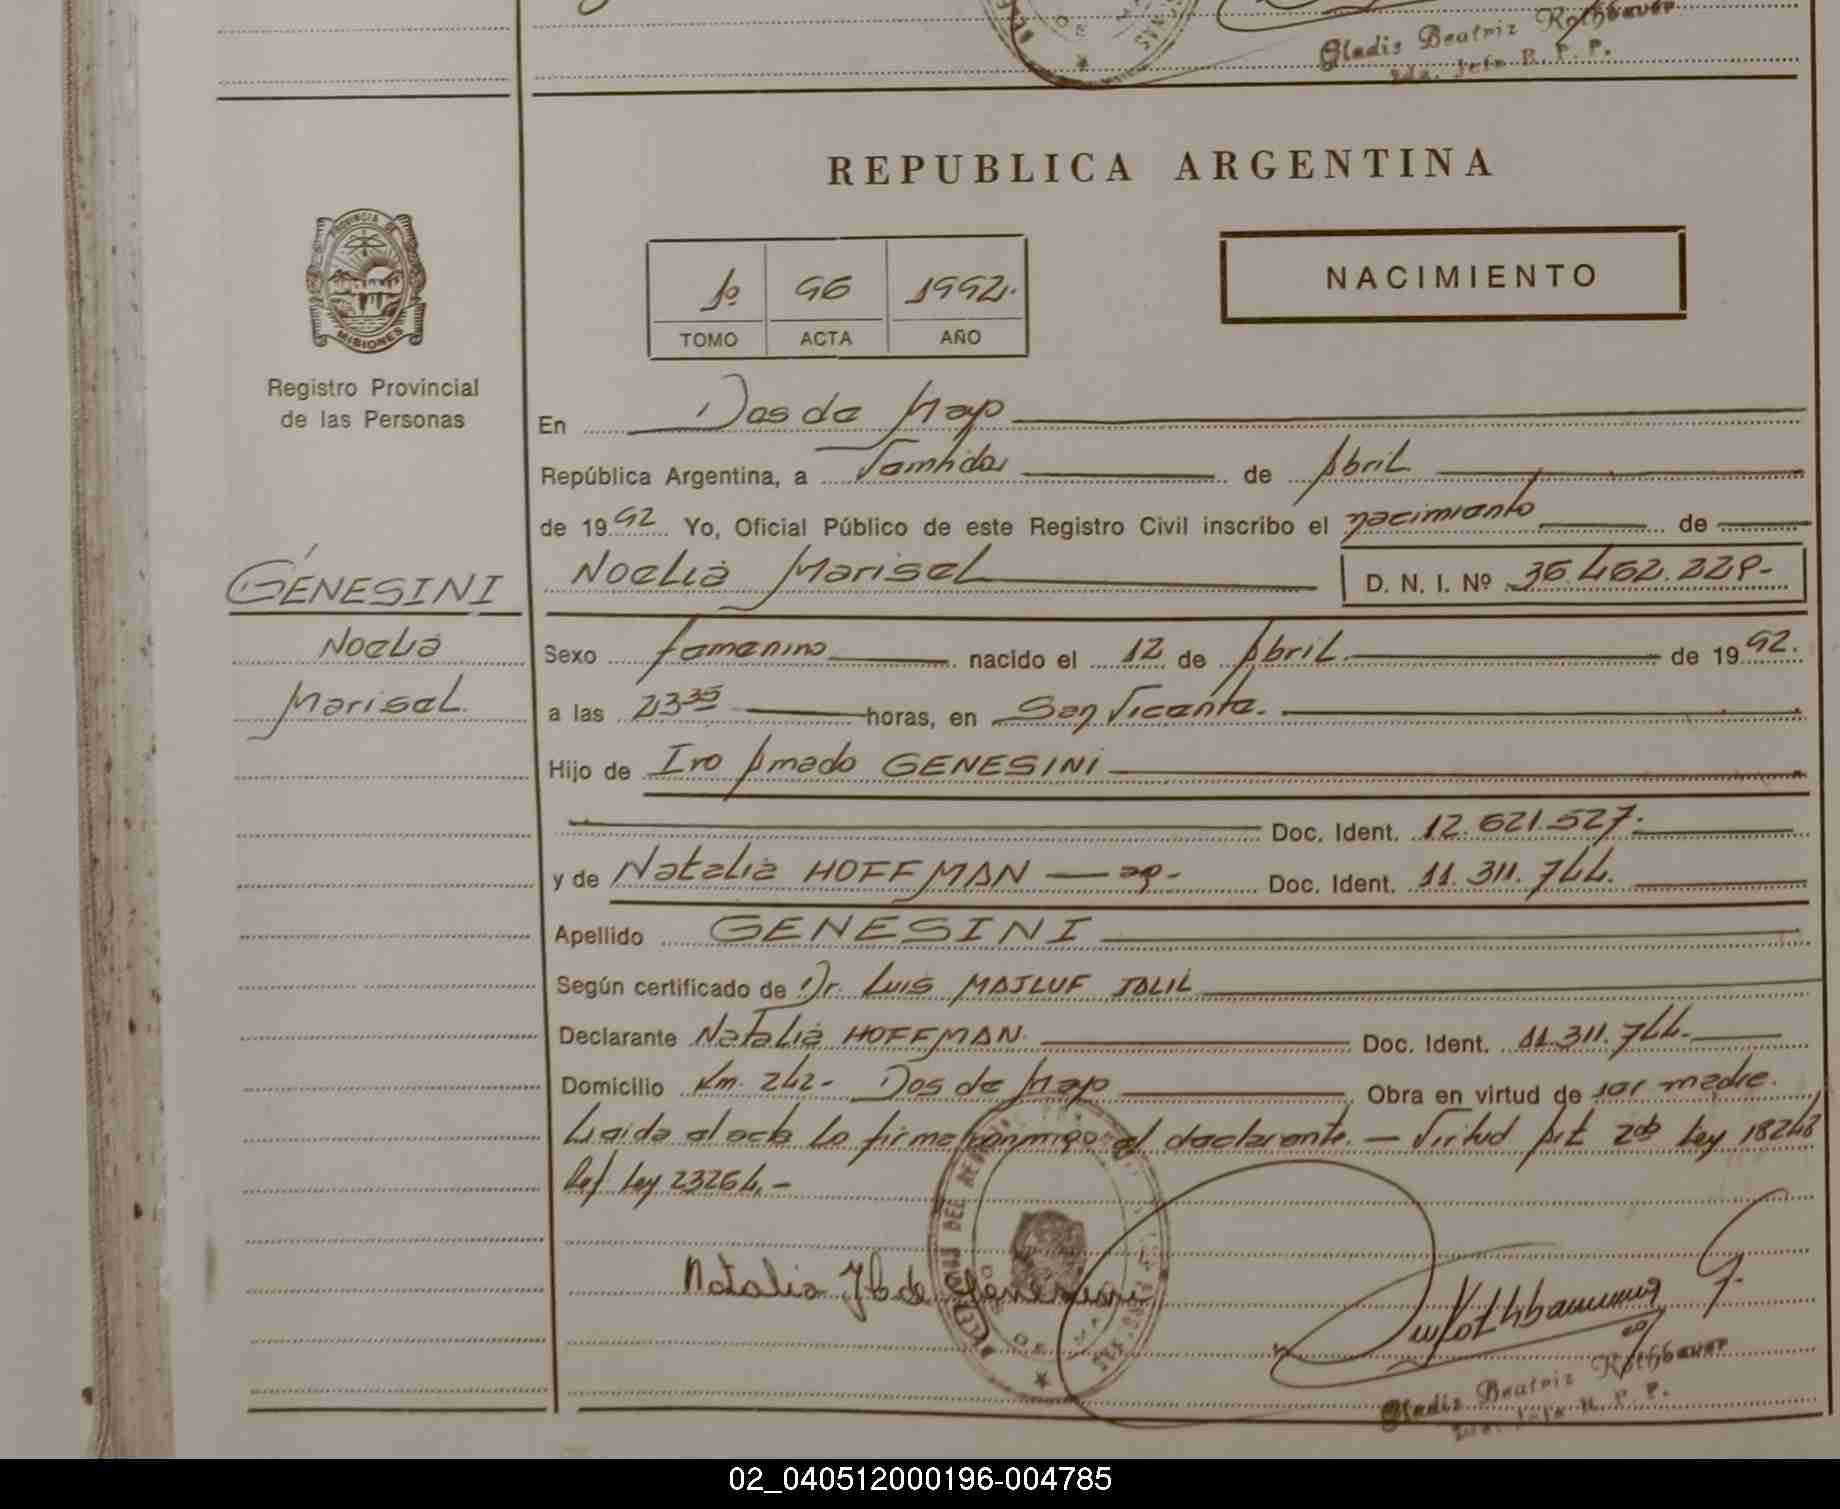 Gladis Beatriz Rothbauer
2da. Jefa R. P. P.
REPUBLICA ARGENTINA
PROVINCIA DE
MISIONES
Registro Provincial
de las Personas
1º 96 1992.
TOMO ACTA AÑO
NACIMIENTO
En Dos de Mayo
República Argentina, a Veintidos de Abril
de 1992 Yo, Oficial Público de este Registro Civil inscribo el nacimiento de
GENESINI
Noelia Marisel D. N. I. Nº 36.462.229-
Noelia
Marisel.
Sexo femenino nacido el 12 de Abril. de 1992.
a las 23 35 horas, en San Vicente.
Hijo de Ivo Amado GENESINI
Doc. Ident. 12.621.527.
y de Natalia HOFFMAN Doc. Ident. 11.311.744.
Apellido GENESINI
Según certificado de Dr. Luis MAJLUF JALIL
Declarante Natalia HOFFMAN. Doc. Ident. 11.311.744.-
Domicilio Km. 242- Dos de Mayo Obra en virtud de ser madre.
Leida el acta la firma conmigo el declarante. — Virtud Art 2do Ley 18248
Ref Ley 23264.-
Natalia H de Genesini
Rothbauer G.
Gladis Beatriz Rothbauer
2da. Jefa R. P. P.
02_040512000196-004785